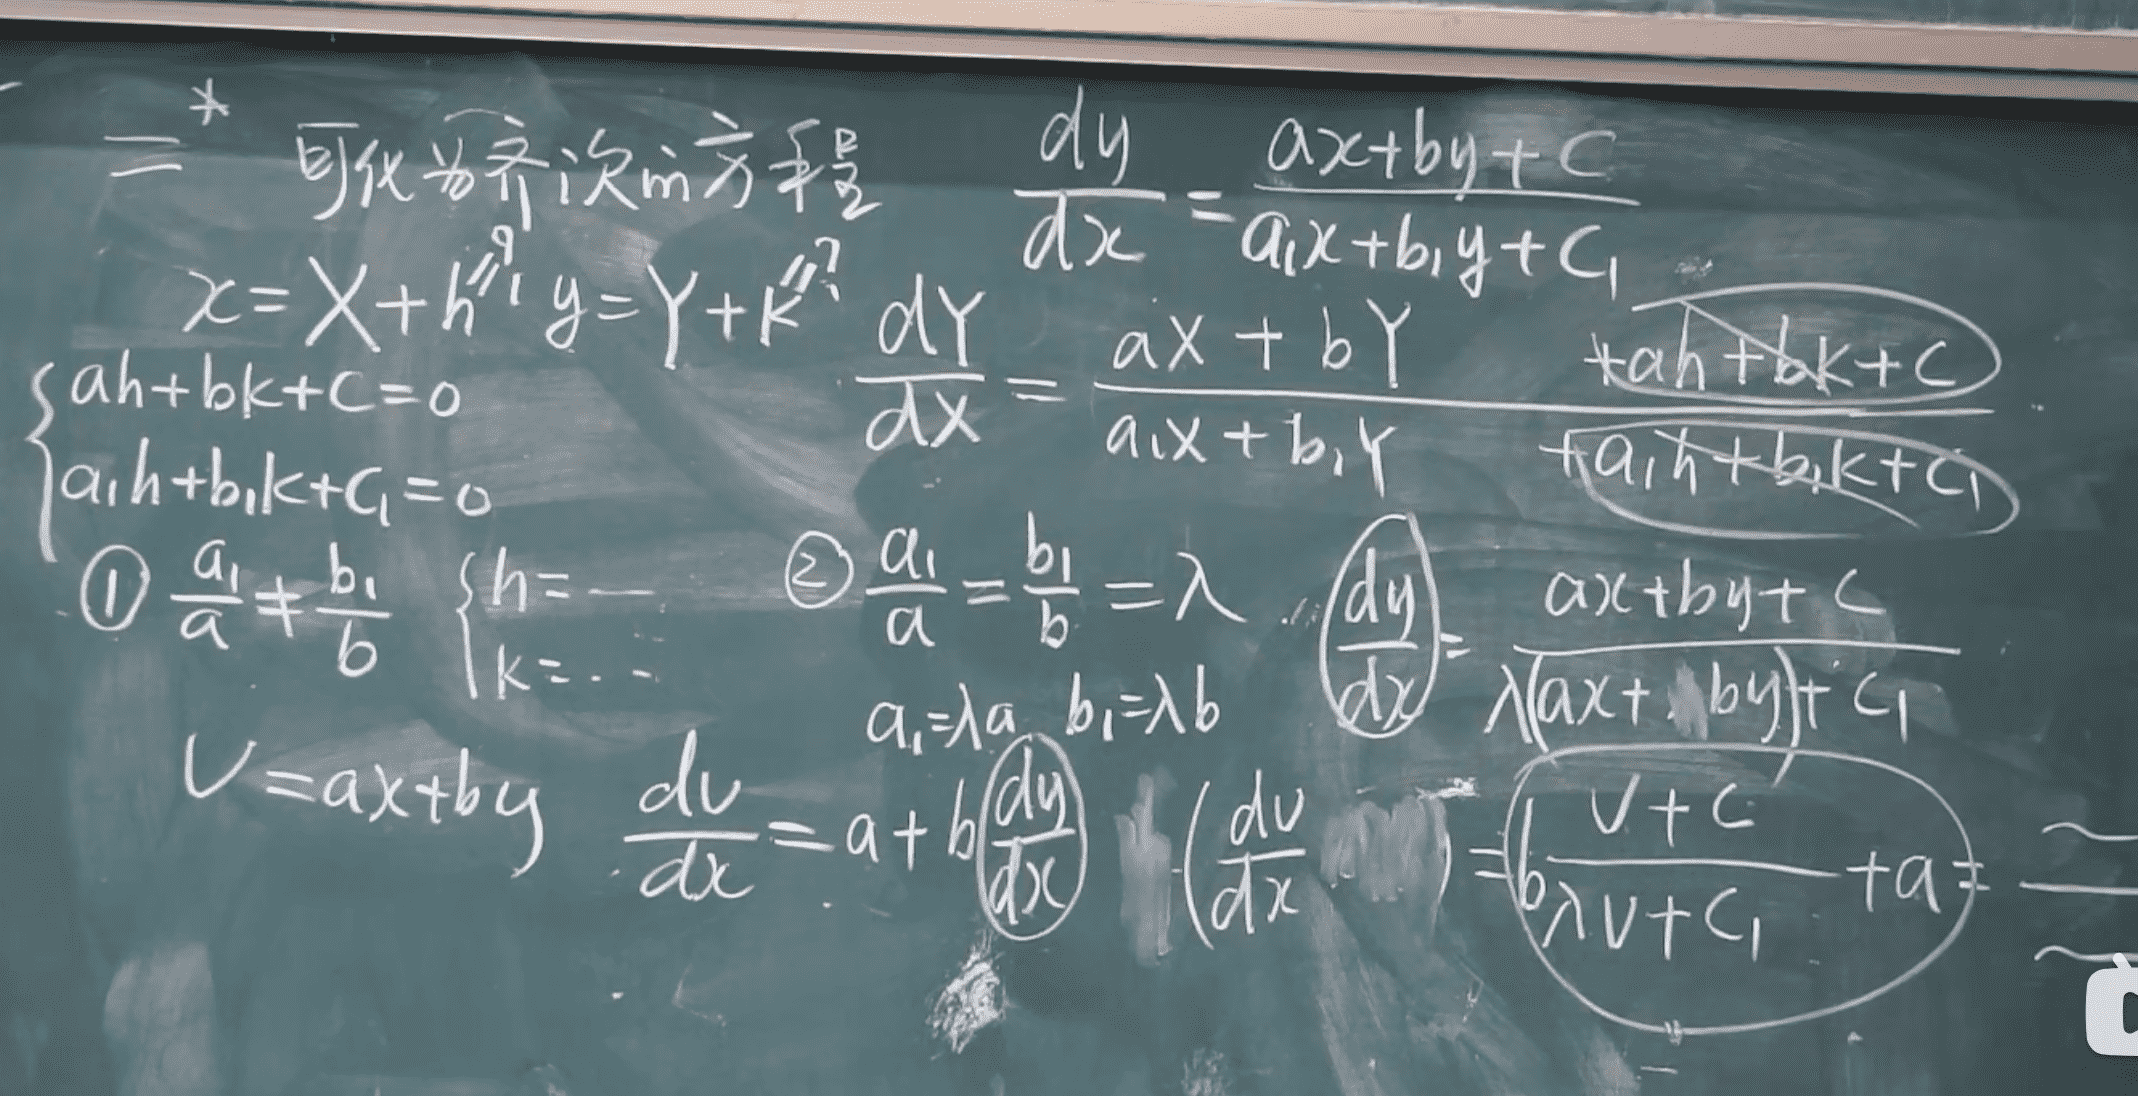 二* 可化为齐次的方程 dy/dx = (ax+by+C)/(a₁x+b₁y+C₁)
x=X+h=? y=Y+k=? dY/dX = (aX+bY+ah+bk+C)/(a₁X+b₁Y+a₁h+b₁k+C₁)
{ah+bk+C=0
a₁h+b₁k+C₁=0
① a₁/a ≠ b₁/b {h=— k=... ② a₁/a = b₁/b = λ dy/dx = (ax+by+C)/(λ(ax+by)+C₁)
a₁=λa b₁=λb
v=ax+by dv/dx = a+b dy/dx (dv/dx ) = b (v+C)/(λv+C₁) +a =